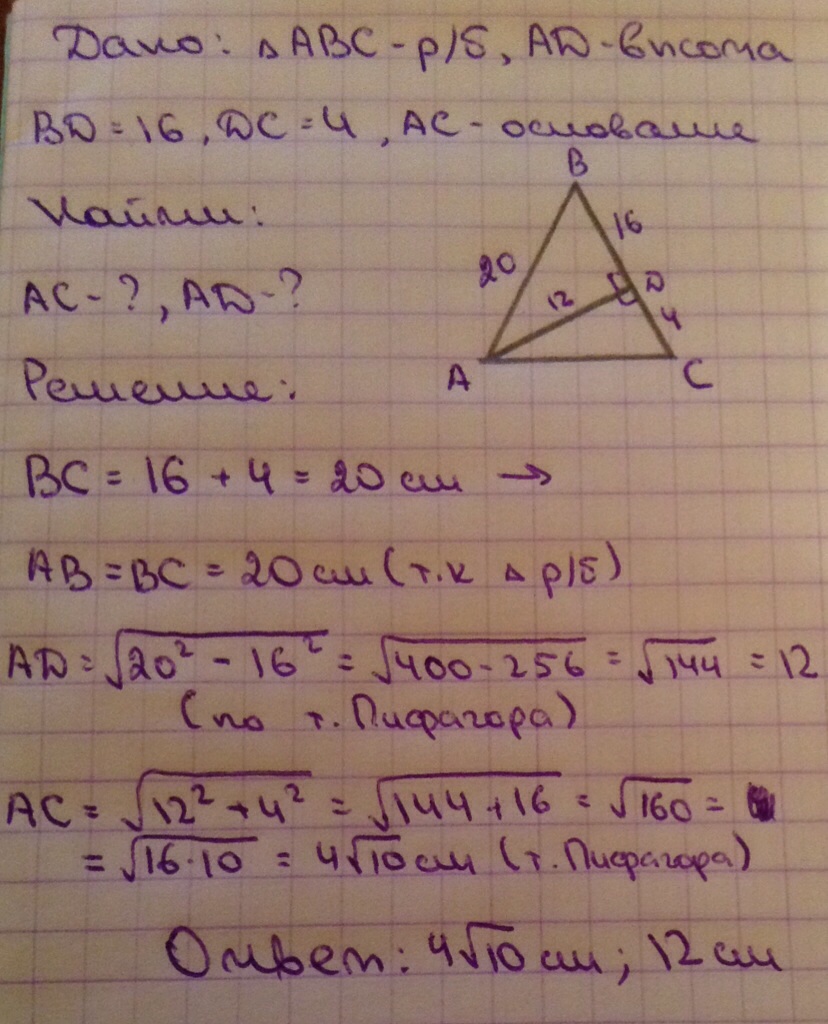 Дано: △ABC - р/б, AD - высота
BD = 16, DC = 4, AC - основание
Найти:
AC - ?, AD - ?
Решение:
B
16
20
12
D
4
A
C
BC = 16 + 4 = 20 см →
AB = BC = 20 см (т.к △ р/б)
AD = √(20² - 16²) = √(400 - 256) = √144 = 12
(по т. Пифагора)
AC = √(12² + 4²) = √(144 + 16) = √160 =
= √(16·10) = 4√10 см (т. Пифагора)
Ответ: 4√10 см; 12 см